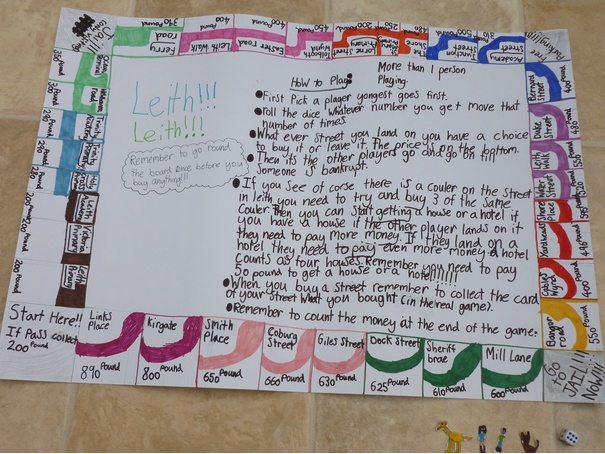 Leith!!!
Leith!!!
Remember to go round
the board once before you
buy anything!!!
How to Play
More than 1 person
Playing.
First Pick a player yongest goes first.
Roll the dice. Whatever number you get move that
number of times.
What ever street you land on you have a choice
to buy it or leave it. The price is on the bottom.
Then its the other players go and go on till
someone is bankrupt.
If you see of corse there is a couler on the street
in leith you need to try and buy 3 of the same
Couler. Then you can start getting a house or a hotel if
you have a house if the other player lands on it
they need to pay more money. If they land on a
hotel they need to pay even more money. a hotel
counts as four houses. Remember you need to pay
50 pound to get a house or a hotel!!!!!!
When you buy a street remember to collect the card
of your street what you bought (in the real game).
Remember to count the money at the end of the game.
Start Here!!
If Pass collect
200 Pound
Links
Place
890 Pound
Kirgate
800 Pound
Smith
Place
650 Pound
Coburg
Street
660 Pound
Giles Street
630 Pound
Dock Street
625 Pound
Sheriff
brae
610 Pound
Mill Lane
600 Pound
Go to
JAIL!!!
Now!!!
Jail!!!
390 Pound
Ferry
road
400 Pound
Leith Walk
Easter road
400 Pound
Lorne Street
Junction
Street
Academy
Street
Bernard
Street
400 Pound
Duke
Street
480 Pound
Leith
Walk
550 Pound
Water
Street
520 Pound
Shore
Place
Yardheads
490 Pound
Cables
Wynd
400 Pound
Bangor
road
550 Pound
200 Pound